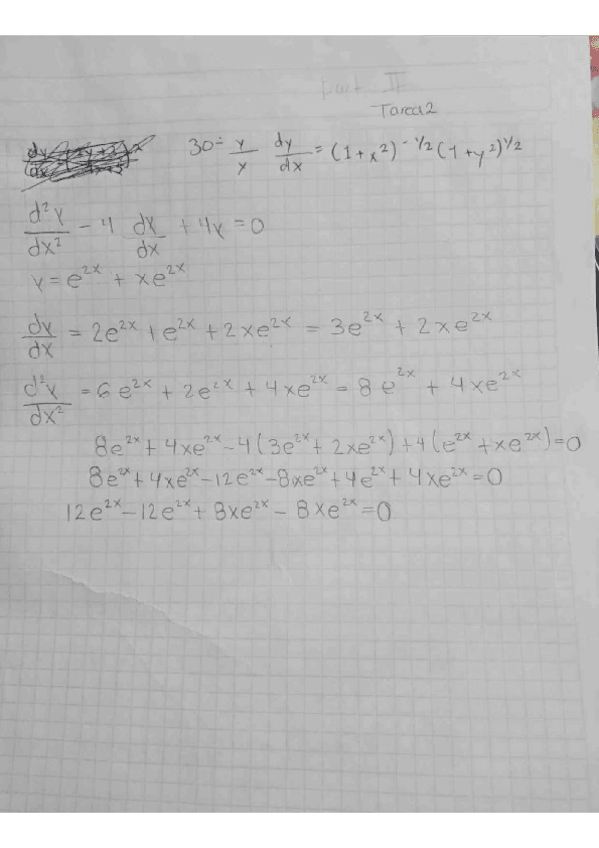 Part II
Tarea 2
30- y/x dy/dx = (1+x²)^-1/2 (1+y²)^1/2
d²y/dx² - 4 dy/dx + 4y = 0
y = e^2x + xe^2x
dy/dx = 2e^2x + e^2x + 2xe^2x = 3e^2x + 2xe^2x
d²y/dx² = 6e^2x + 2e^2x + 4xe^2x = 8e^2x + 4xe^2x
8e^2x + 4xe^2x - 4(3e^2x + 2xe^2x) + 4(e^2x + xe^2x) = 0
8e^2x + 4xe^2x - 12e^2x - 8xe^2x + 4e^2x + 4xe^2x = 0
12e^2x - 12e^2x + 8xe^2x - 8xe^2x = 0